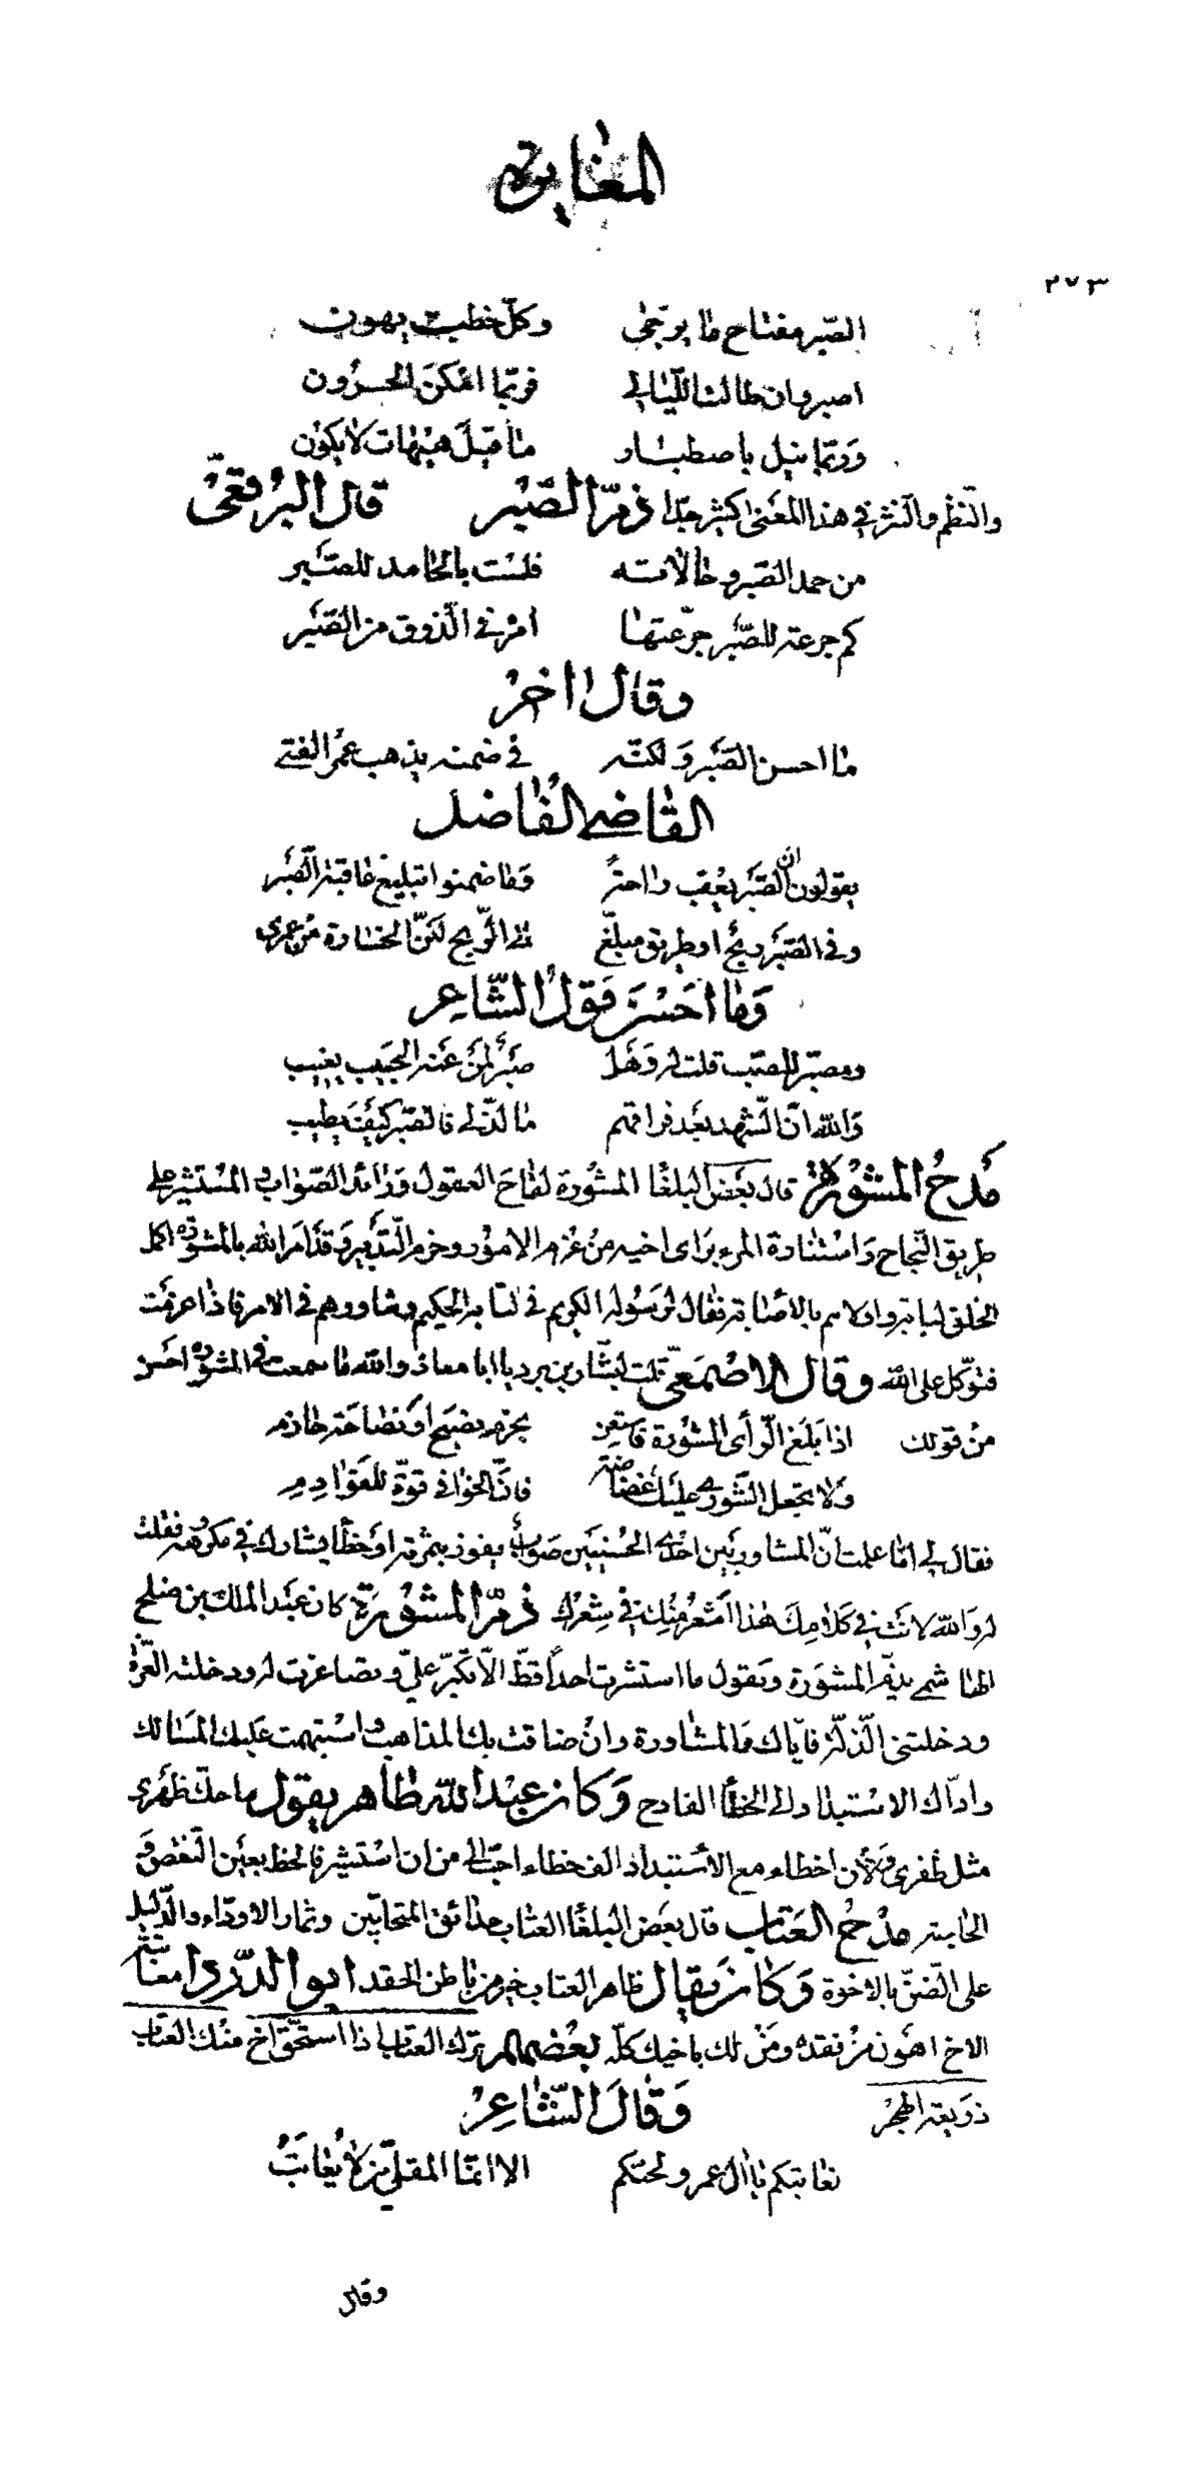 المغايرة
٢٧٣
الصّبر مفتاح ما يرتجى وكلّ خطب يهون
اصبر وان طالت اللّيالي فربّما امكن الحزون
وربّما نيل باصطبار ما قيل هيهات لا يكون
والنّظم والنثر في هذا المعنى اكثر جدّا ذمّ الصّبر قال البرقعيّ
من حمد الصّبر وحالاته فلست بالحامد للصّبر
كم جرعة للصّبر جرّعتها امرّ في الذّوق من الصّبر
وقال اخر
ما احسن الصّبر ولكنّه في ضمنه يذهب عمر الفتى
القاضي الفاضل
يقولون ان الصّبر يعقب راحة وما ضمنوا تبليغ عاقبة الصّبر
وفي الصّبر ربح او طريق مبلّغ الى الرّبح لكنّ الخسارة من عمري
وما احسن قول الشّاعر
ومصبّر للصّب قلت له وهل صبر لمن عنه الحبيب يغيب
والله انّ الشّهد بعد فراقهم ما لذّ لي فالصّبر كيف يطيب
مدح المشورة قال بعض البلغا المشورة لقاح العقول ورائد الصّواب والمستشير على
طريق النّجاح واستنارة المرء براى اخيه من عزم الامور وحزم التّدبير وقد امر الله بالمشورة اكمل
الخلق لبابة واولاهم بالاصابة فقال لرسوله الكريم في كتابه الحكيم وشاورهم في الامر فاذا عزمت
فتوكّل على الله وقال الاصمعيّ قلت لبشّار بن برد يا ابا معاذ والله ما سمعت في المشورة احسن
من قولك اذا بلغ الرّأى المشورة فاستعن بحزم نصيح او نصاحة حازم
ولا تجعل الشّورى عليك غضاضة فانّ الخوافي قوّة للقوادم
فقال لي اما علمت انّ المشاور بين احدى الحسنيين صواب يفوز بثمرته او خطأ يشارك في مكروهه فقلت
له والله لانت في كلامك هذا اشعر منك في شعرك ذمّ المشورة كان عبد الملك بن صلح
الهاشمي يذمّ المشورة ويقول ما استشرت احداً قطّ الّا تكبّر عليّ وتصاغرت له ودخلته العزّة
ودخلتني الذّلّة فايّاك والمشاورة وان ضاقت بك المذاهب واستبهمت عليك المسالك
وادّاك الاستبداد الى الخطأ الفادح وكان عبد الله طاهر يقول ما حكّ ظهري
مثل ظفري ولأن اخطاء مع الأستبداد الف خطاء احبّ الي من ان استشير فالحظ بعين النّقص و
الخابته مدح العتاب قال بعض البلغا العتاب حدائق المتحابّين وثمار الاودّاء والدّليل
على الضنّ بالاخوة وكان يقال ظاهر العتاب خير من باطن الحقد ابو الدّردا معاتبة
الاخ اهون من فقده ومن لك باخيك كلّه بعضهم ترك العتاب اذا استحقّ اخ منك العتاب
ذريعة الهجر
وقال الشّاعر
نعاتبكم يا ال عمرو لحبّكم الا انّما المقليّ من لا يعاتب
وقال